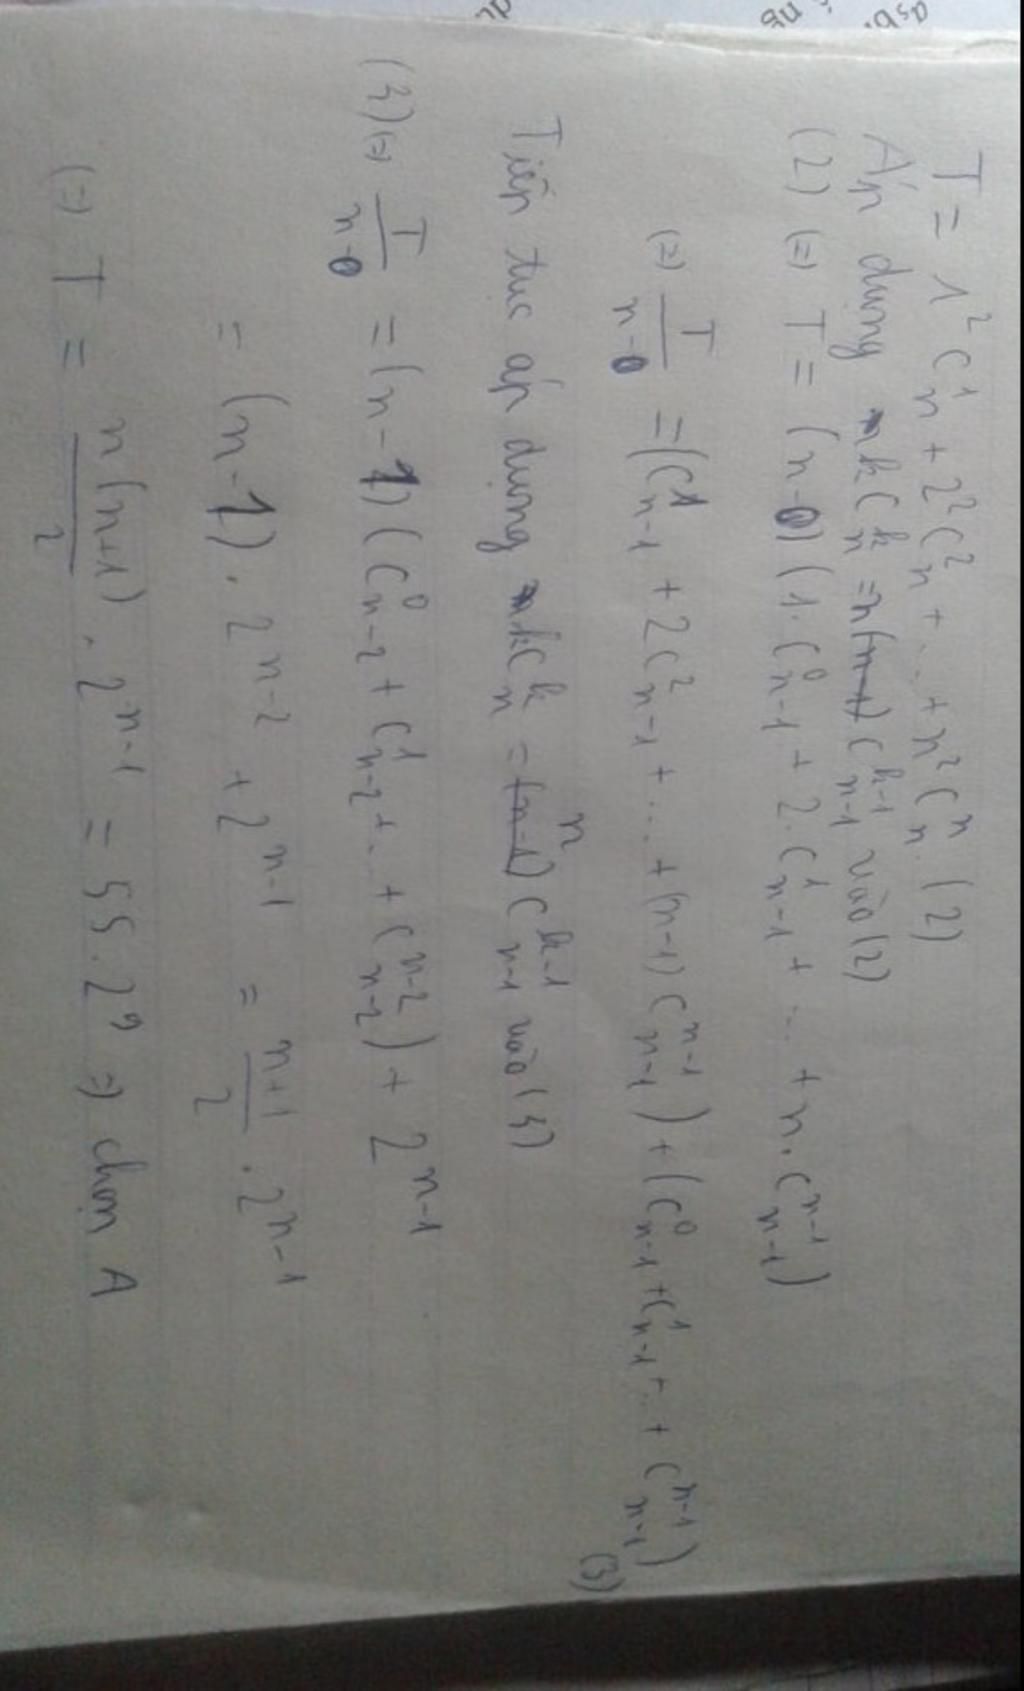 T = 1² C_n^1 + 2² C_n^2 + ... + n² C_n^n. (2)
Áp dụng kC_n^k = n C_{n-1}^{k-1} vào (2)
(2) (=) T = (n-0) (1. C_{n-1}^0 + 2. C_{n-1}^1 + ... + n. C_{n-1}^{n-1})
(=) T/(n-0) = (C_{n-1}^1 + 2C_{n-1}^2 + ... + (n-1) C_{n-1}^{n-1}) + (C_{n-1}^0 + C_{n-1}^1 + ... + C_{n-1}^{n-1}) (3)
Tiếp tục áp dụng kC_n^k = n C_{n-1}^{k-1} vào (3)
(3) (=) T/(n-0) = (n-1) (C_{n-2}^0 + C_{n-2}^1 + ... + C_{n-2}^{n-2}) + 2^{n-1}
= (n-1). 2^{n-2} + 2^{n-1} = (n+1)/2 . 2^{n-1}
(=) T = n(n+1)/2 . 2^{n-1} = 55. 2^9 => chọn A